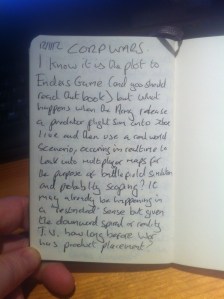 CORPWARS.
I know it is the plot to
Enders Game (and you should
read that book) but what
happens when the Army release
a predator flight sim onto Xbox
live and then use a real world
scenario, occuring in realtime to
lock into multiplayer maps for
the purpose of battlefield simulation
and probability scoping? It
may already be happening in
a "restricted" sense but given
the downward spiral of reality
T.V. how long before war
has product placement?